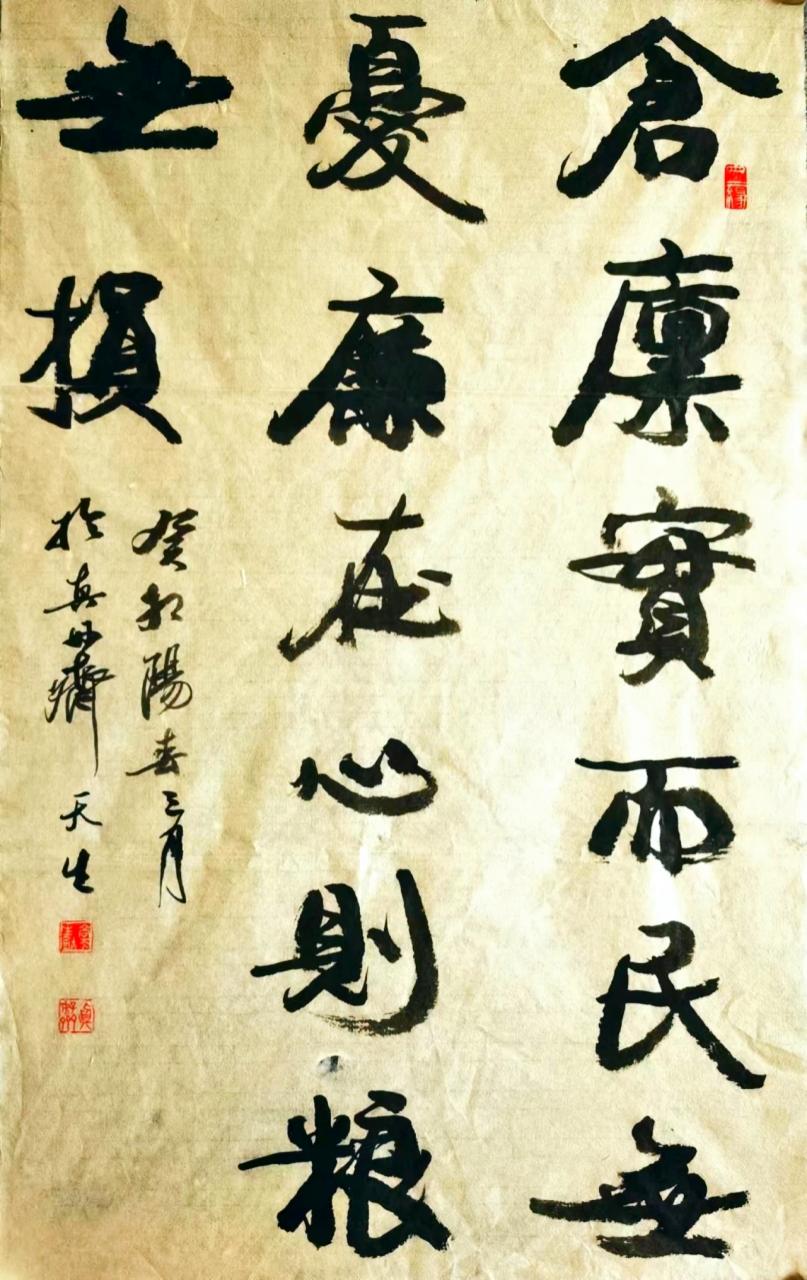 倉廩實而民無
憂廉在心則糧
無損
癸卯陽春三月
於真妙齋 天生